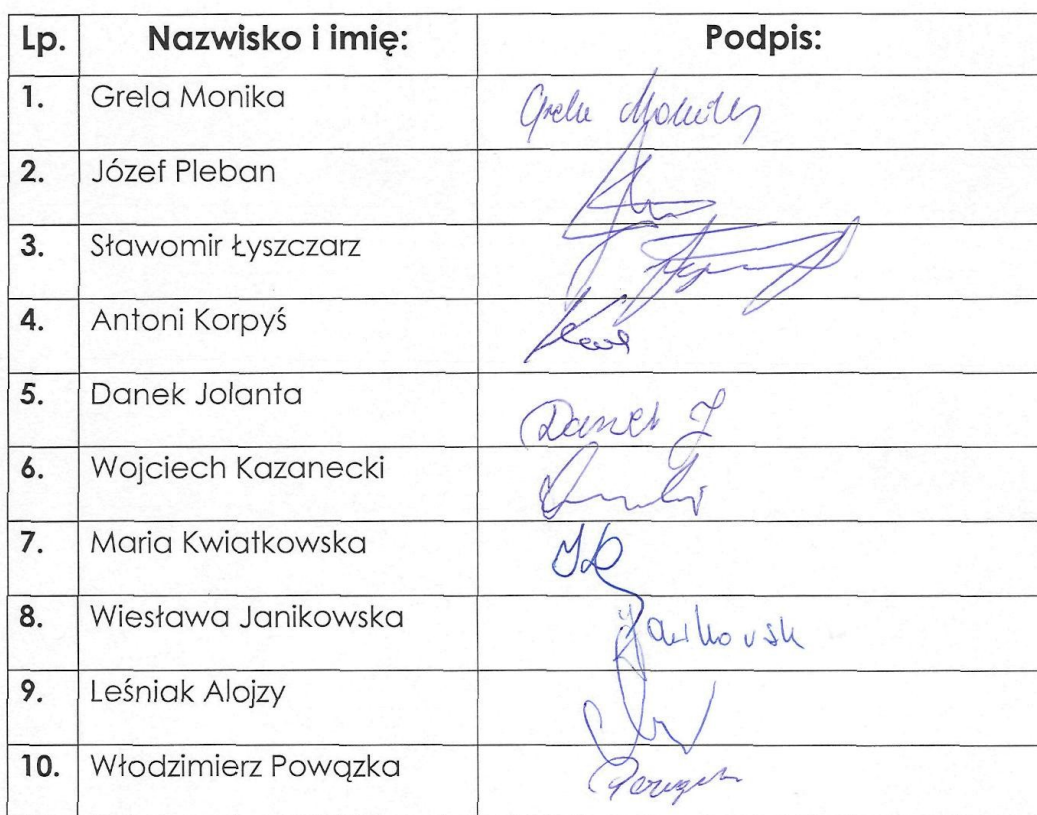 Lp. Nazwisko i imię: Podpis:
1. Grela Monika Grela Monika
2. Józef Pleban
3. Sławomir Łyszczarz
4. Antoni Korpyś
5. Danek Jolanta Danek J
6. Wojciech Kazanecki
7. Maria Kwiatkowska
8. Wiesława Janikowska
9. Leśniak Alojzy
10. Włodzimierz Powązka